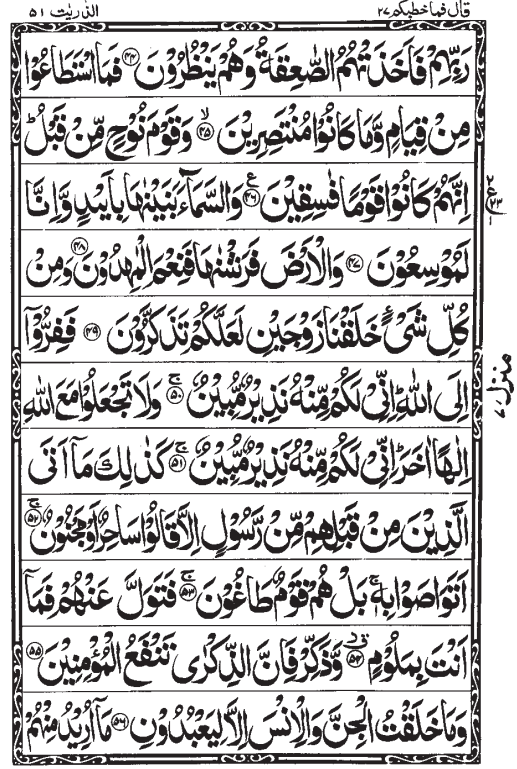 قال فما خطبكم ٢٧
الذٰريٰت ٥١
رَبِّهِمْ فَاَخَذَتْهُمُ الصّٰعِقَةُ وَهُمْ يَنْظُرُوْنَ ﴿۴۴﴾ فَمَا اسْتَطَاعُوْا
مِنْ قِيَامٍ وَّمَا كَانُوْا مُنْتَصِرِيْنَ ۙ﴿۴۵﴾ وَقَوْمَ نُوْحٍ مِّنْ قَبْلُ ؕ
اِنَّهُمْ كَانُوْا قَوْمًا فٰسِقِيْنَ ﴿۴۶﴾ ع وَالسَّمَآءَ بَنَيْنٰهَا بِاَيْىدٍ وَّاِنَّا
لَمُوْسِعُوْنَ ﴿۴۷﴾ وَالْاَرْضَ فَرَشْنٰهَا فَنِعْمَ الْمٰهِدُوْنَ ﴿۴۸﴾ وَمِنْ
كُلِّ شَىْءٍ خَلَقْنَا زَوْجَيْنِ لَعَلَّكُمْ تَذَكَّرُوْنَ ﴿۴۹﴾ فَفِرُّوْۤا
اِلَى اللّٰهِ ؕ اِنِّىْ لَكُمْ مِّنْهُ نَذِيْرٌ مُّبِيْنٌ ۚ﴿۵۰﴾ وَلَا تَجْعَلُوْا مَعَ اللّٰهِ
اِلٰهًا اٰخَرَ ؕ اِنِّىْ لَكُمْ مِّنْهُ نَذِيْرٌ مُّبِيْنٌ ۚ﴿۵۱﴾ كَذٰلِكَ مَاۤ اَتَى
الَّذِيْنَ مِنْ قَبْلِهِمْ مِّنْ رَّسُوْلٍ اِلَّا قَالُوْا سَاحِرٌ اَوْ مَجْنُوْنٌ ۚ﴿۵۲﴾
اَتَوَاصَوْا بِهٖ ۚ بَلْ هُمْ قَوْمٌ طَاغُوْنَ ۚ﴿۵۳﴾ فَتَوَلَّ عَنْهُمْ فَمَاۤ
اَنْتَ بِمَلُوْمٍ ﴿۵۴﴾ وَّذَكِّرْ فَاِنَّ الذِّكْرٰى تَنْفَعُ الْمُؤْمِنِيْنَ ﴿۵۵﴾
وَمَا خَلَقْتُ الْجِنَّ وَالْاِنْسَ اِلَّا لِيَعْبُدُوْنِ ﴿۵۶﴾ مَاۤ اُرِيْدُ مِنْهُمْ
٢ ع ٢٣ ١
منزل ٧